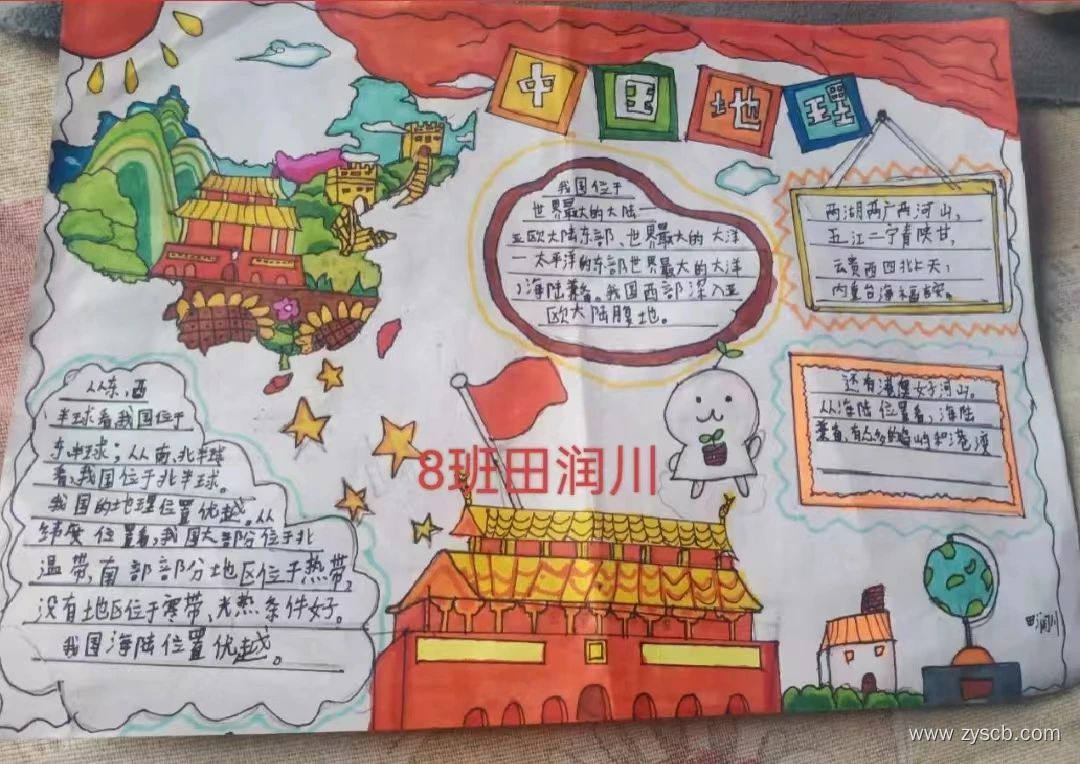 中国地理
我国位于
世界最大的大陆—
亚欧大陆东部、世界最大的大洋
一太平洋的东部世界最大的大洋
海陆兼备。我国西部深入亚
欧大陆腹地。
两湖两广两河山,
五江二宁青陕甘,
云贵西四北上天,
内重台海福吉安。
还有港澳好河山。
从海陆位置看,海陆
兼备、有众多的岛屿和港湾
从东、西
半球看我国位于
东半球;从南、北半球
看,我国位于北半球。
我国的地理位置优越。从
纬度位置看,我国大部分位于北
温带,南部部分地区位于热带,
没有地区位于寒带,光热条件好。
我国海陆位置优越。
8班田润川
田润川
www.zyscb.com